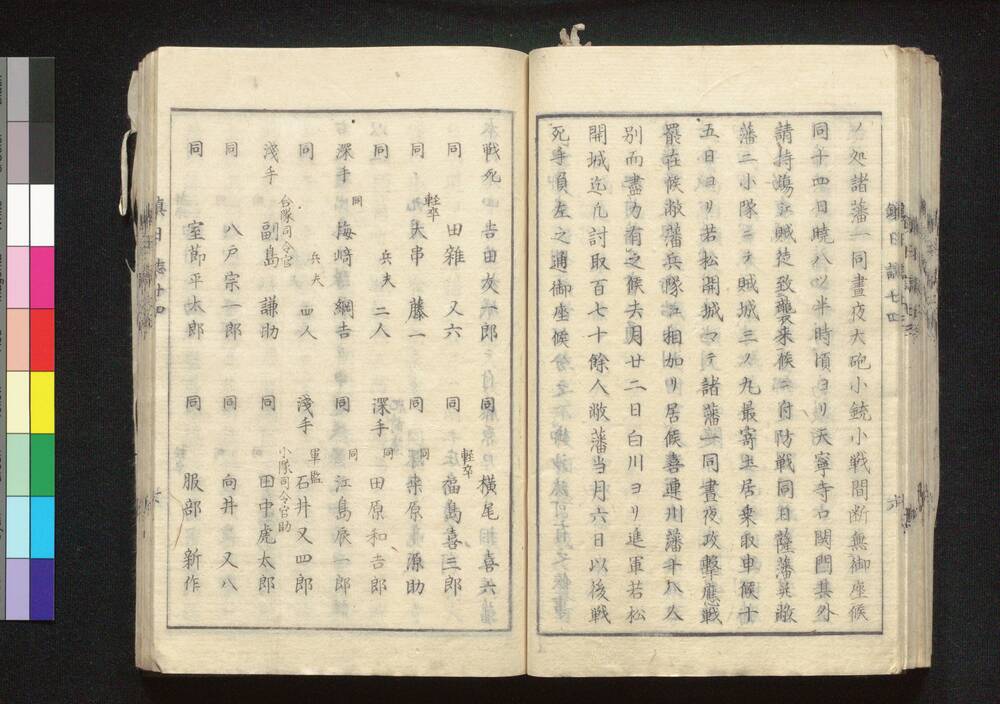 ノ処諸藩一同晝夜大砲小銃小戦間断無御座候
同十四日暁八ツ半時頃ヨリ天寧寺口関門其外
請持場江賊徒致襲来候ニ付防戦同日薩藩並敝
藩二小隊ニテ賊城三ノ九最寄土居乗取申候十
五日ヨリ若松開城マテ諸藩一同晝夜攻撃應戦
罷在候敝藩兵隊江相加リ居候喜連川藩士八人
別而盡力有之候去月廿二日白川ヨリ進軍若松
開城迄凡討取百七十餘人敝藩当月六日以後戦
死手負左之通御座候
鎮日誌七四
六
戦死 吉田友十郎 同 軽卒 横尾喜六
同 田雑又六 同 軽卒 福島喜三郎
同 軽卒 大串藤一 同 同 栗原源助
同 兵夫二人 深手 同 田原和吉郎
深手 同 梅﨑綱吉 同 同 江島辰一郎
同 兵夫四人 淺手 軍監 石井又四郎
淺手 合隊司令官 副島謙助 同 小隊司令官助 田中虎太郎
同 八戸宗一郎 同 向井又八
同 室節平太郎 同 服部新作